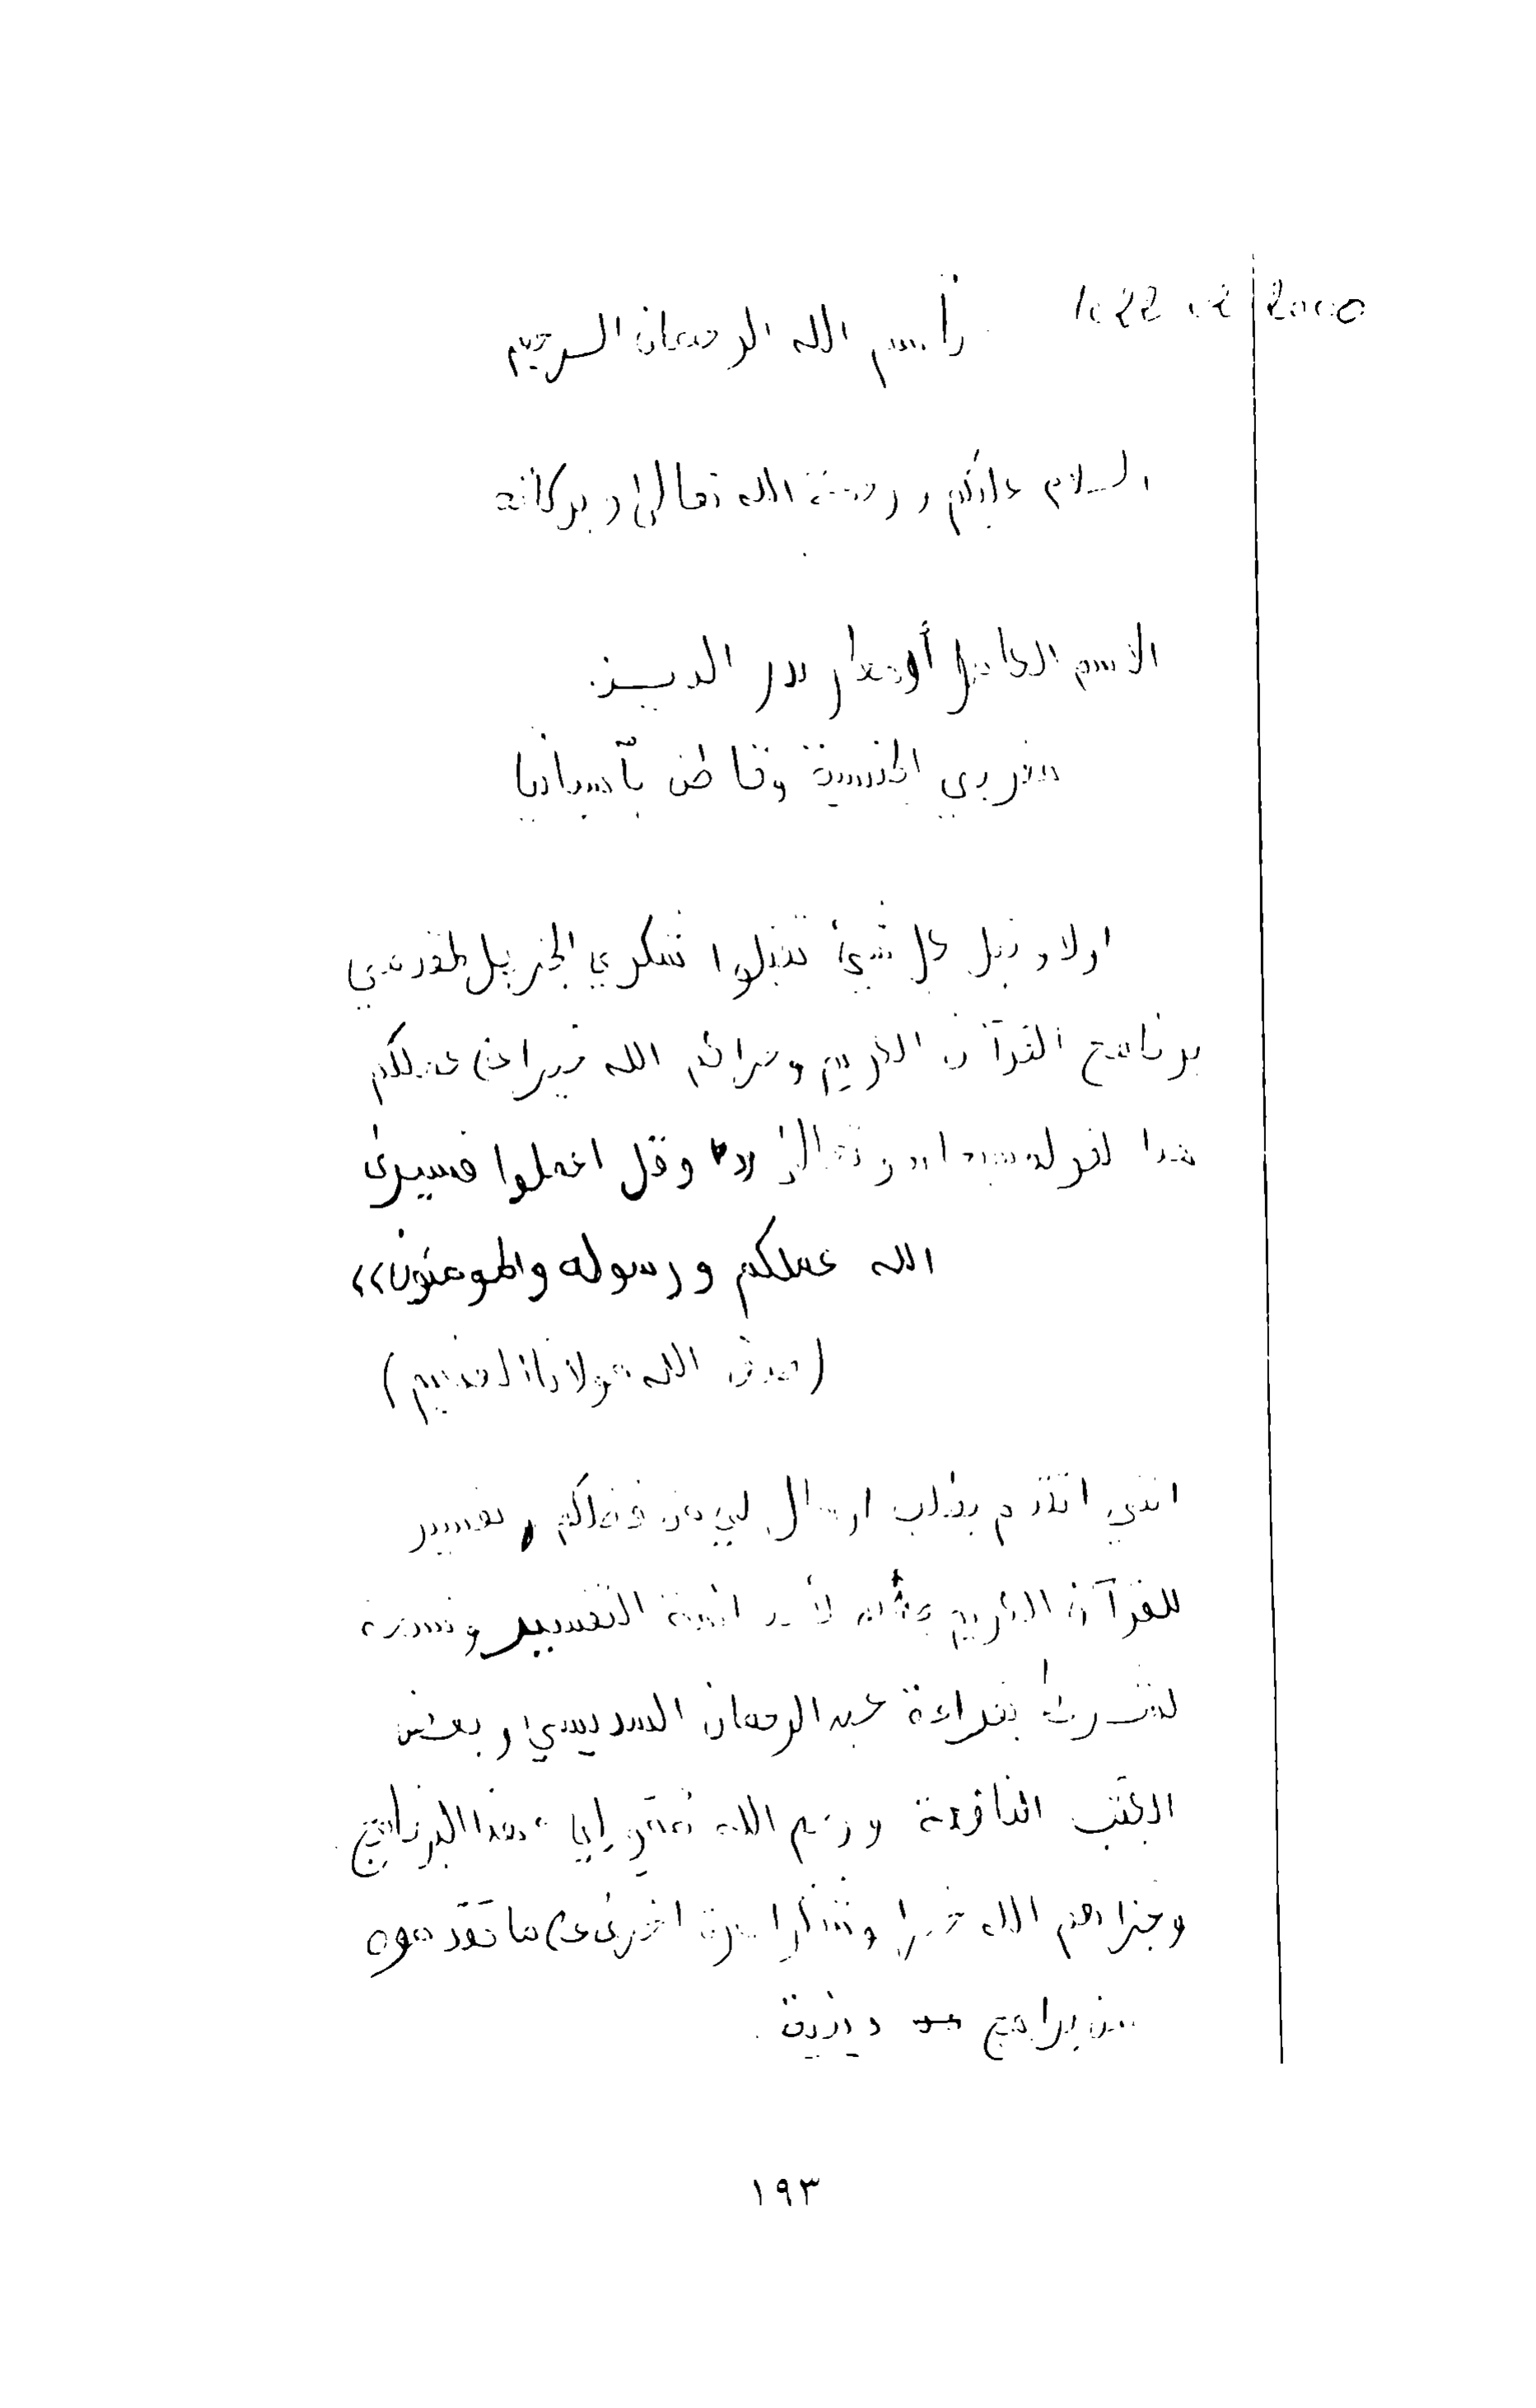 بسم الله الرحمان الرحيم
السلام عليكم ورحمة الله تعالى وبركاته
الاسم الكامل بدر الدين
مغربي الجنسية وقاطن بآسبانيا
اولا وقبل كل شيئ تقبلوا شكري الجزيل لمقدمي
برنامج القرآن الكريم وجزاكم الله خيرا على عملكم
هذا لقوله سبحانه وتعالى «وقل اعملوا فسيرى
الله عملكم ورسوله والمومنون»
(صدق الله مولانا العظيم)
انني اتقدم بطلب ارسال لي من فضلكم تفسير
للقرآن الكريم لأحد ائمة التفسير ونسخة
بقراءة عبد الرحمان السديسي وبعض
الكتب النافعة هذا البرنامج
وجزاكم الله خيرا وشكرا مرة اخرى على ما تقدموه
من برامج دينية
١٩٣